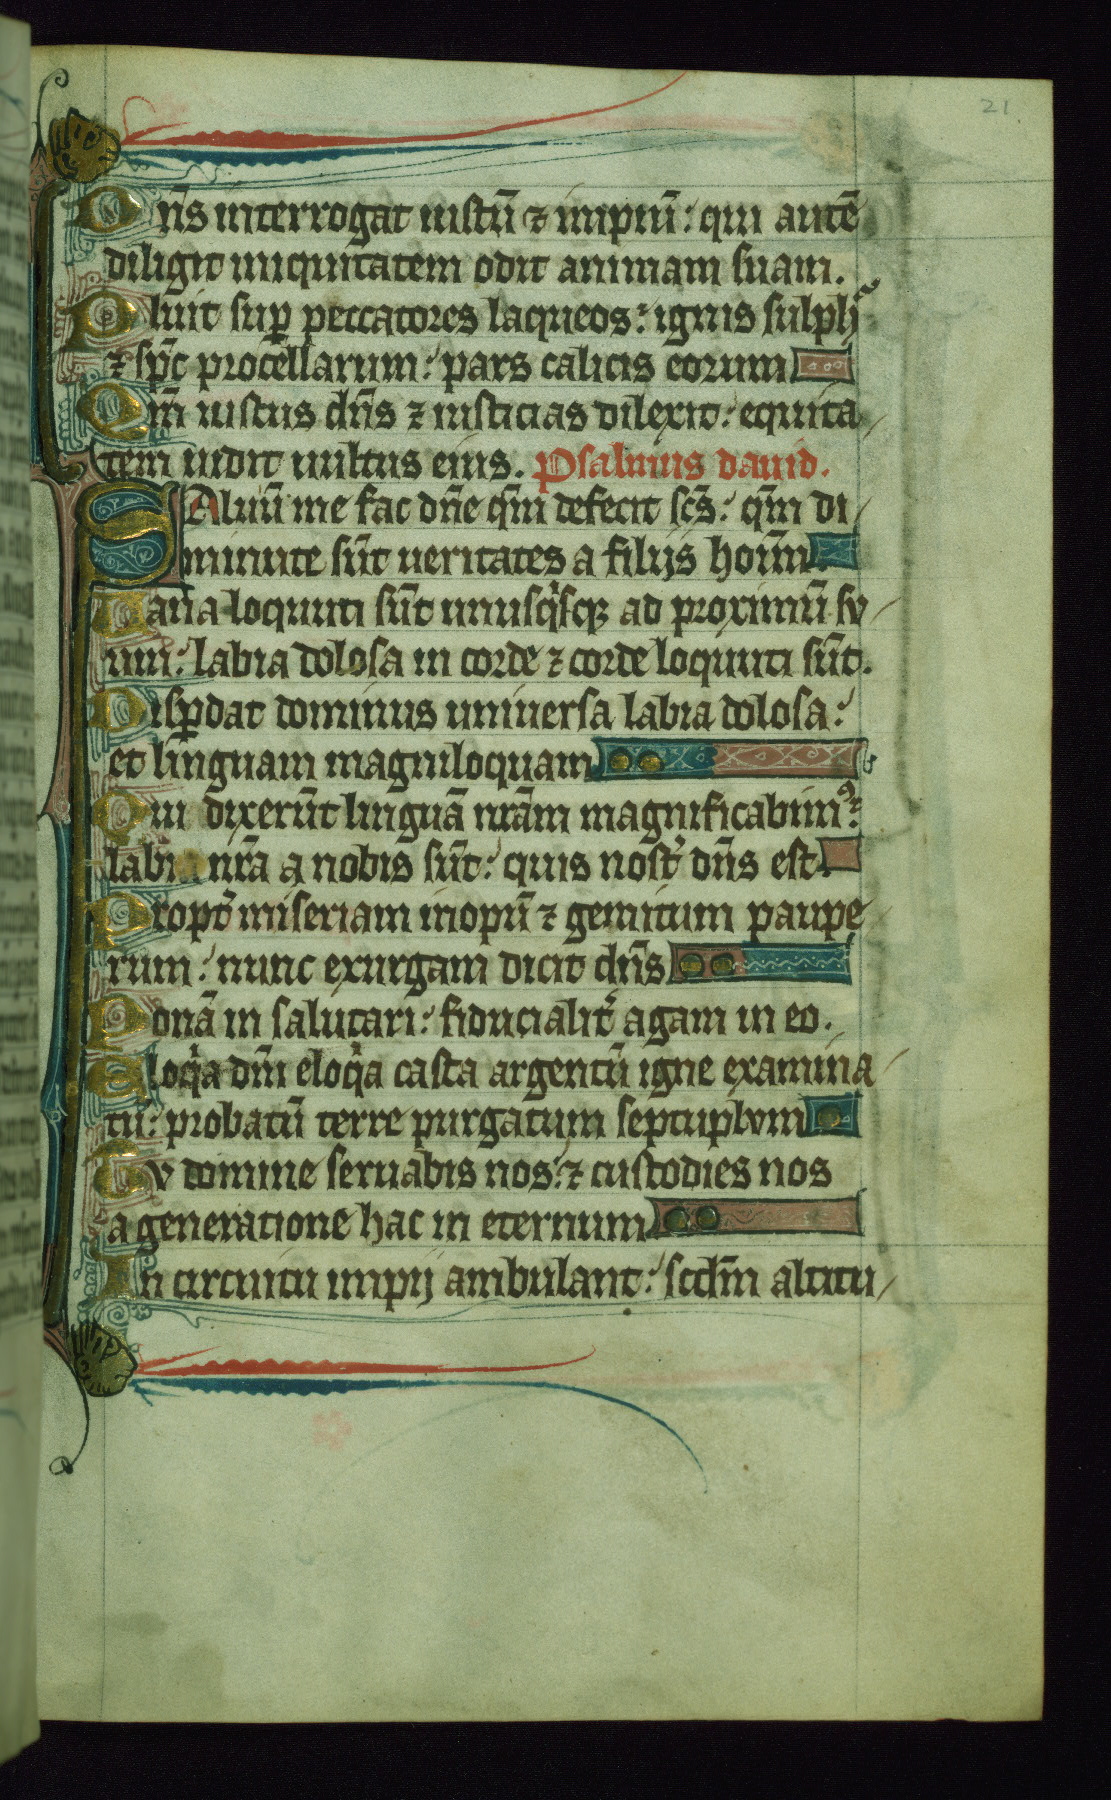 21
Dn̄s interrogat iustū ⁊ impiū: qui autē
diligit iniquitatem odit animam suam.
Pluit sup̲ peccatores laqueos: ignis sulph̾
⁊ sp̄c procellarum: pars calicis eorum
Qm̄ iustus dn̄s ⁊ iusticias dilexit: equita
tem uidit uultus eius. Psalmus dauid.
SAluū me fac dn̄e qm̄ defecit sc̄s: qm̄ di
minute sūt ueritates a filijs hoīm
Uana loquuti sūt unusqͥsqꝫ ad proximū sv
um: labia dolosa in corde ⁊ corde loquuti sūt.
Disꝑdat dominus uniuersa labia dolosa:
et linguam magniloquam
Qui dixerūt linguā nr̄am magnificabimꝰ:
labia nr̄a a nobis sūt: quis nost̾ dn̄s est
Propt̾ miseriam inopū ⁊ gemitum paupe
rum: nunc exurgam dicit dn̄s
Ponā in salutari: fiducialit̾ agam in eo.
Eloqͥa dn̄i eloqͥa casta argentū igne examina
tū: probatū terre purgatum septuplvm
Tv domine seruabis nos: ⁊ custodies nos
a generatione hac in eternum
In circuitu impij ambulant: scd̄m altitu